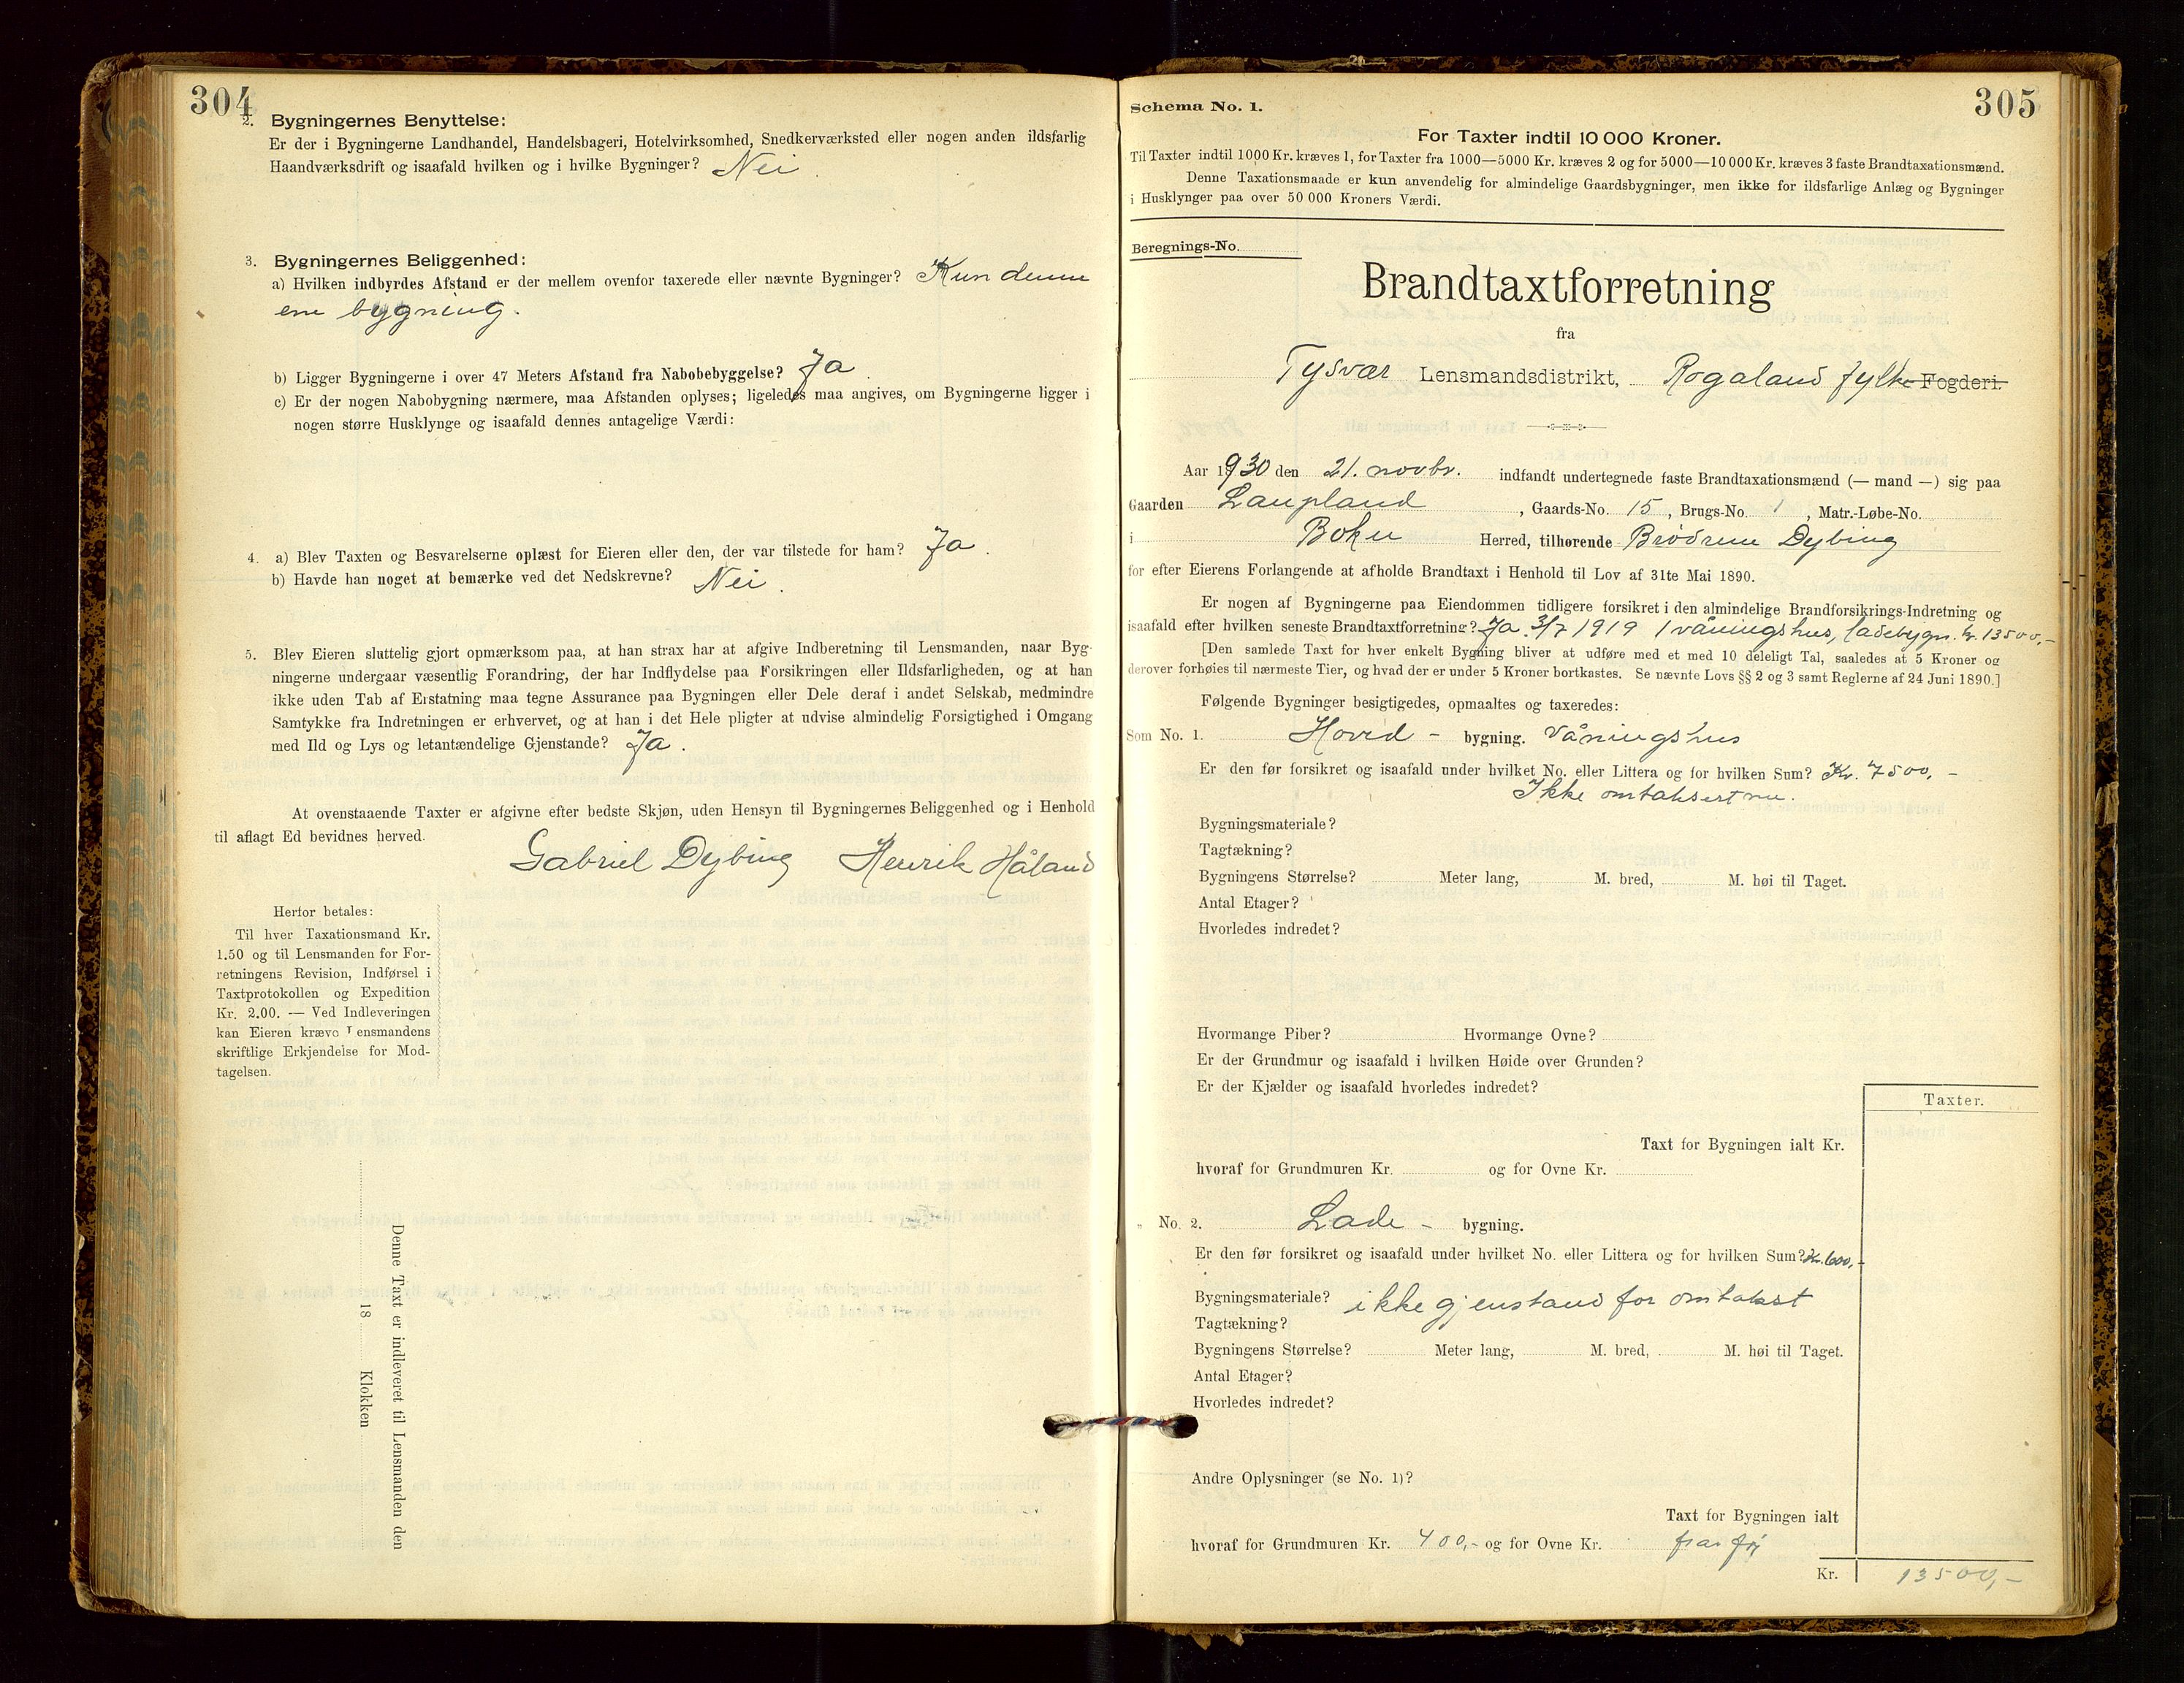 304
2. Bygningernes Benyttelse:
Er der i Bygningerne Landhandel, Handelsbageri, Hotelvirksomhed, Snedkerværksted eller nogen anden ildsfarlig
Haandværksdrift og isaafald hvilken og i hvilke Bygninger? Nei.
3. Bygningernes Beliggenhed:
a) Hvilken indbyrdes Afstand er der mellem ovenfor taxerede eller nævnte Bygninger? Kun denne
ene bygning.
b) Ligger Bygningerne i over 47 Meters Afstand fra Nabobebyggelse? Ja.
c) Er der nogen Nabobygning nærmere, maa Afstanden oplyses; ligeledes maa angives, om Bygningerne ligger i
nogen større Husklynge og isaafald dennes antagelige Værdi:
4. a) Blev Taxten og Besvarelserne oplæst for Eieren eller den, der var tilstede for ham? Ja.
b) Havde han noget at bemærke ved det Nedskrevne? Nei.
5. Blev Eieren sluttelig gjort opmærksom paa, at han strax har at afgive Indberetning til Lensmanden, naar Byg-
ningerne undergaar væsentlig Forandring, der har Indflydelse paa Forsikringen eller Ildsfarligheden, og at han
ikke uden Tab af Erstatning maa tegne Assurance paa Bygningen eller Dele deraf i andet Selskab, medmindre
Samtykke fra Indretningen er erhvervet, og at han i det Hele pligter at udvise almindelig Forsigtighed i Omgang
med Ild og Lys og letantændelige Gjenstande? Ja.
At ovenstaaende Taxter er afgivne efter bedste Skjøn, uden Hensyn til Bygningernes Beliggenhed og i Henhold
til aflagt Ed bevidnes herved.
Gabriel Dybing Henrik Håland
Herfor betales:
Til hver Taxationsmand Kr.
1.50 og til Lensmanden for For-
retningens Revision, Indførsel i
Taxtprotokollen og Expedition
Kr. 2.00. — Ved Indleveringen
kan Eieren kræve Lensmandens
skriftlige Erkjendelse for Mod-
tagelsen.
Denne Taxt er indleveret til Lensmanden den
18 Klokken
305
Schema No. 1.
For Taxter indtil 10 000 Kroner.
Til Taxter indtil 1000 Kr. kræves 1, for Taxter fra 1000—5000 Kr. kræves 2 og for 5000—10 000 Kr. kræves 3 faste Brandtaxationsmænd.
Denne Taxationsmaade er kun anvendelig for almindelige Gaardsbygninger, men ikke for ildsfarlige Anlæg og Bygninger
i Husklynger paa over 50 000 Kroners Værdi.
Beregnings-No.
Brandtaxtforretning
fra
Tysvær Lensmandsdistrikt, Rogaland fylke Fogderi.
Aar 1930 den 21. novbr. indfandt undertegnede faste Brandtaxationsmænd (— mand —) sig paa
Gaarden Laupland, Gaards-No. 15, Brugs-No. 1, Matr.-Løbe-No.
i Bokn Herred, tilhørende Brødrene Dybing
for efter Eierens Forlangende at afholde Brandtaxt i Henhold til Lov af 31te Mai 1890.
Er nogen af Bygningerne paa Eiendommen tidligere forsikret i den almindelige Brandforsikrings-Indretning og
isaafald efter hvilken seneste Brandtaxtforretning? Ja 3/7 1919 1 våningshus, ladebygn. kr. 13500,-
[Den samlede Taxt for hver enkelt Bygning bliver at udføre med et med 10 deleligt Tal, saaledes at 5 Kroner og
derover forhøies til nærmeste Tier, og hvad der er under 5 Kroner bortkastes. Se nævnte Lovs §§ 2 og 3 samt Reglerne af 24 Juni 1890.]
Følgende Bygninger besigtigedes, opmaaltes og taxeredes:
Som No. 1. Hoved- bygning. Våningshus
Er den før forsikret og isaafald under hvilket No. eller Littera og for hvilken Sum? Kr. 7500,-
Ikke omtaksert nu.
Bygningsmateriale?
Tagtækning?
Bygningens Størrelse? Meter lang, M. bred, M. høi til Taget.
Antal Etager?
Hvorledes indredet?
Hvormange Piber? Hvormange Ovne?
Er der Grundmur og isaafald i hvilken Høide over Grunden?
Er der Kjælder og isaafald hvorledes indredet?
Taxter.
Taxt for Bygningen ialt Kr.
hvoraf for Grundmuren Kr. og for Ovne Kr.
„ No. 2. Lade- bygning.
Er den før forsikret og isaafald under hvilket No. eller Littera og for hvilken Sum? Kr. 600,-
Bygningsmateriale? ikke gjenstand for omtakst
Tagtækning?
Bygningens Størrelse? Meter lang, M. bred, M. høi til Taget.
Antal Etager?
Hvorledes indredet?
Andre Oplysninger (se No. 1)?
Taxt for Bygningen ialt
hvoraf for Grundmuren Kr. 400,- og for Ovne Kr.
Kr. 13500,-